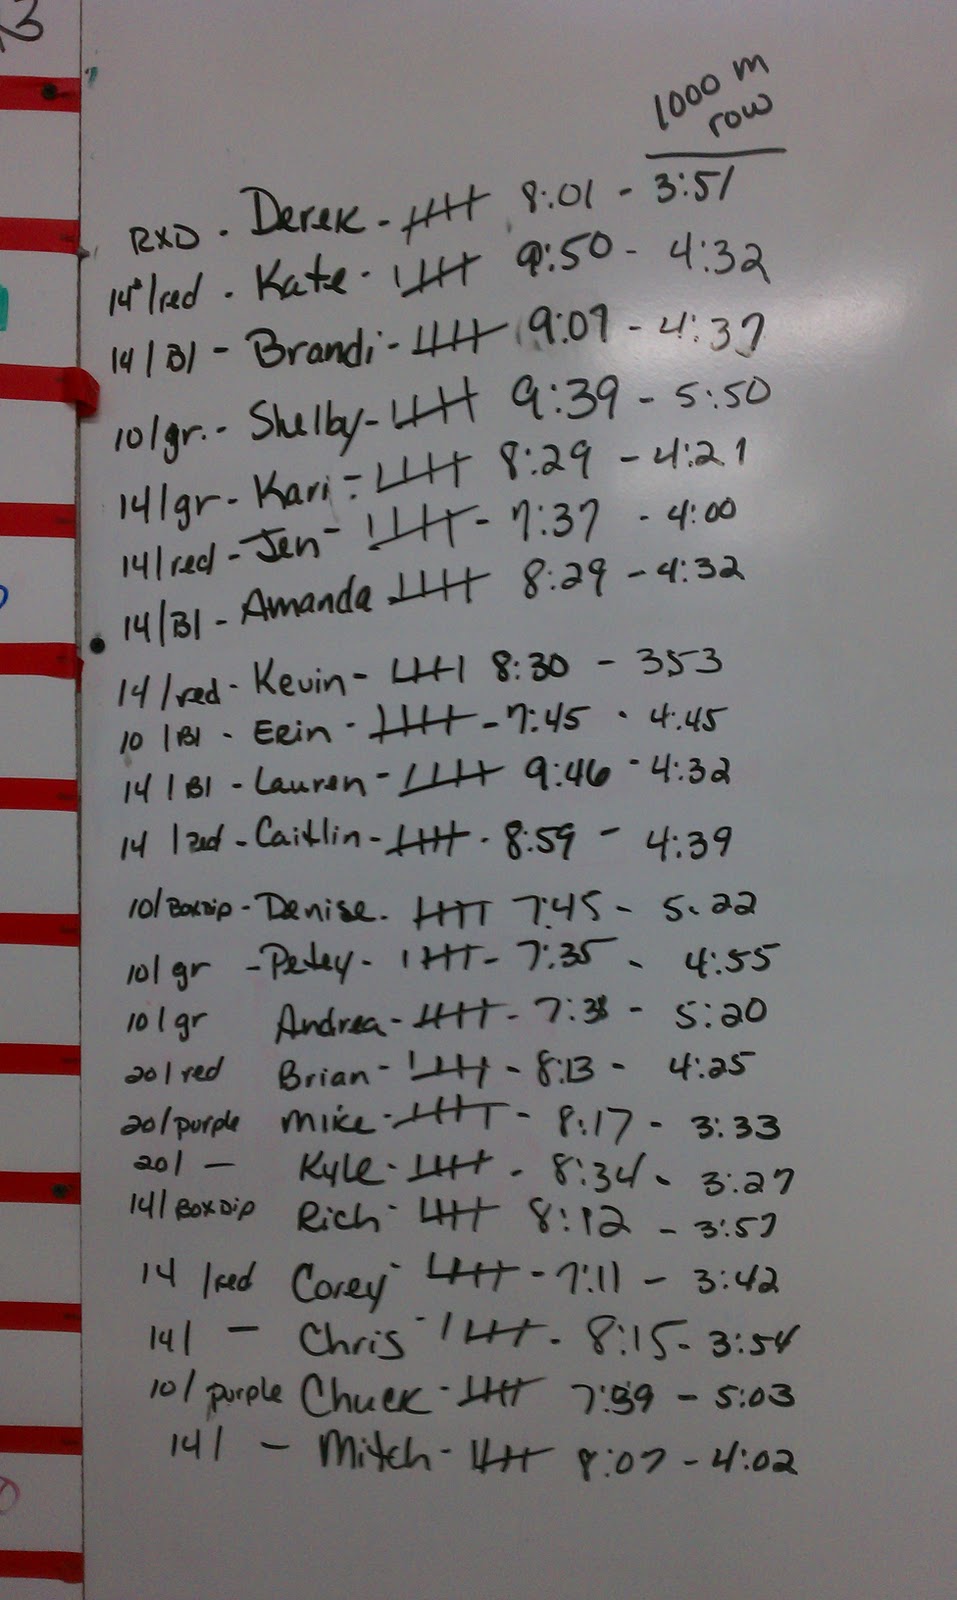 1000 m
row
RXD - Derek - 8:01 - 3:51
14#/red - Kate - 9:50 - 4:32
14/Bl - Brandi - 9:07 - 4:37
10/gr. - Shelby - 9:39 - 5:50
14/gr - Kari - 8:29 - 4:21
14/red - Jen - 7:37 - 4:00
14/Bl - Amanda 8:29 - 4:32
14/red - Kevin - 8:30 - 353
10/Bl - Erin - 7:45 - 4:45
14/Bl - Lauren - 9:46 - 4:32
14/red - Caitlin - 8:59 - 4:39
10/BoxDip - Denise - 7:45 - 5:22
10/gr - Petey - 7:35 - 4:55
10/gr Andrea - - 5:20
20/red Brian - 8:13 - 4:25
20/purple Mike - 8:17 - 3:33
20/ - Kyle - 8:34 - 3:27
14/BoxDip Rich - 8:12 - 3:57
14/red Corey - 7:11 - 3:42
14/ - Chris - 8:15 - 3:54
10/purple Chuck - - 5:03
14/ - Mitch - 8:07 - 4:02